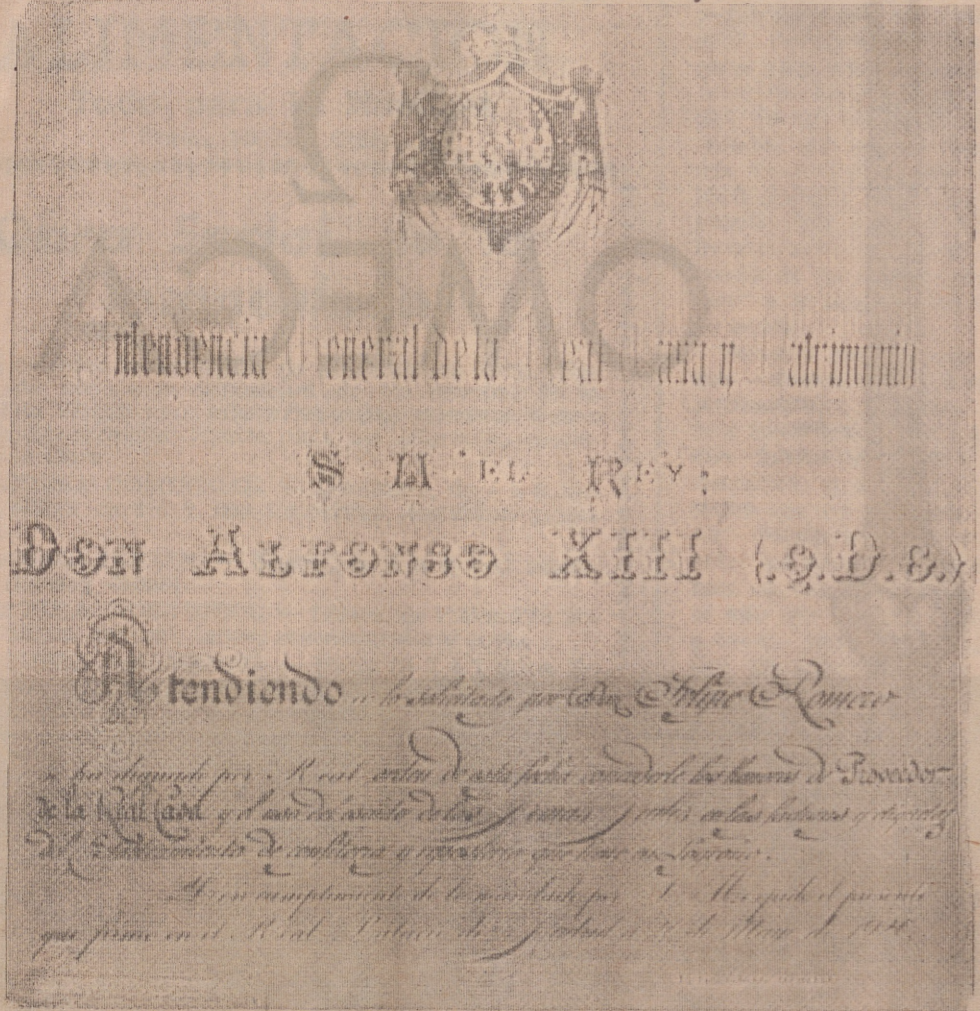 Intendencia General de la Real Casa y Patrimonio
S M EL REY:
DON ALFONSO XIII (.Q.D.G.)
Atendiendo a lo solicitado por Don Felipe Romero
se ha dignado por Real orden de esta fecha concederle los honores de Proveedor
de la Real Casa y el uso del escudo de las Armas Reales en las facturas y etiquetas
del Establecimiento de confitería y repostería que tiene en Logroño.
Y en cumplimiento de lo mandado por S. M. expido el presente
que firmo en el Real Palacio de Madrid a de Mayo de